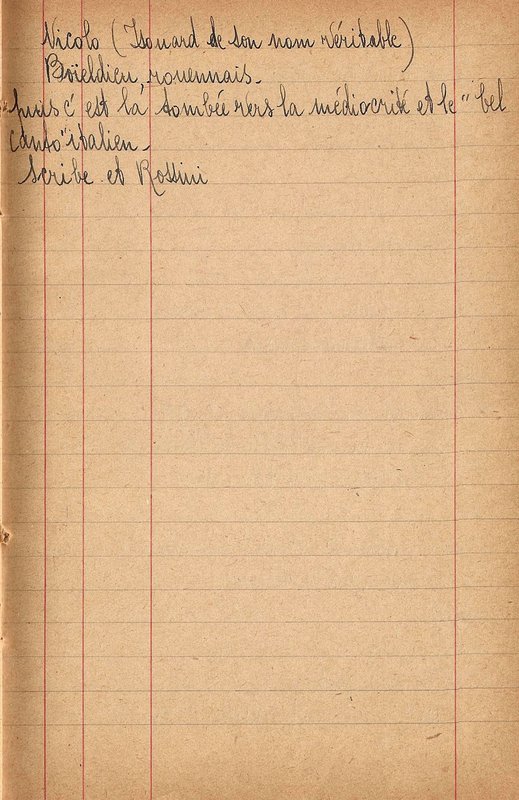 Nicolo (Isouard de son nom véritable)
Boïeldien, rouennais.
puis c'est la tombée vers la médiocrité et le "bel
canto" italien.
Scribe et Rossini